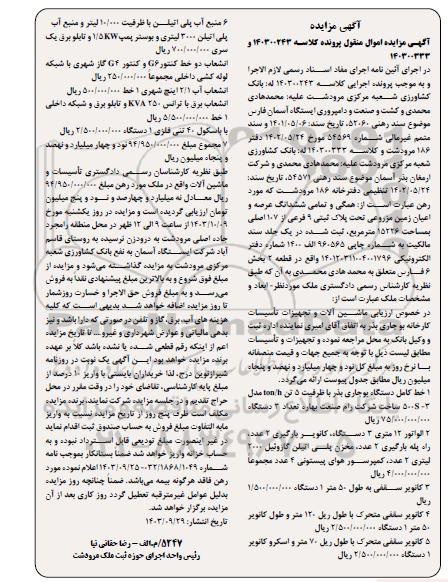 آگهی مزایده
آگهـی مزایده اموال منقول پرونده کلاسـه ۱۴۰۳۰۰۲۴۳ و
۱۴۰۳۰۰۳۳۳
در اجرای آئین نامه اجرای مفاد اسـناد رسمی لازم الاجرا
و به موجب پرونده اجرایی کلاسه ۱۴۰۳۰۰۲۴۳ له: بانک
کشاورزی شـعبه مرکزی مرودشـت علیه: محمدهادی
محمدی و کشت و صنعت و دامپروری ایستگاه آسمان فارس
موضوع سند رهنی ۵۲۰۶۰، تاریخ سند: ۱۴۰۱/۰۵/۰۶ و سند
متمم غیرمالی شـماره ۵۴۵۶۹ مورخ ۱۴۰۲/۰۵/۲۴ دفتر
۱۸۶ مرودشـت و کلاسـه ۱۴۰۳۰۰۳۳۳ له: بانک کشاورزی
شعبه مرکزی مرودشت علیه: محمدهادی محمدی و شرکت
ارمغان بذر آسمان موضوع سند رهنی ۵۴۵۷۱، تاریخ سند:
۱۴۰۲/۰۵/۲۴ تنظیمی دفترخانه ۱۸۶ مرودشـت که مورد
رهن عبارت اسـت از: همگی و تمامی ششدانگ عرصه و
اعیان زمین مزروعی تحت پلاک ثبتی ۹ فرعی از ۱۰۷ اصلی
بمساحت ۱۵۲۲۶ مترمربع، ثبت شده در یک جلد سند
مالکیت به شماره چاپی ۹۶۰۵۶۵ الف ۱۴۰۰ شماره دفتر
الکترونیکی ۱۴۰۲۲۰۳۱۱۰۴۰۰۱۷۹۶ واقع در قطعه ۲ بخش
۶ فـارس متعلق به محمد هادی محمـدی به آن که طبق
نظریه کارشناس رسمی دادگستری ملک موردنظر- ابعاد و
مشخصات ملک عبارت است از:
در خصوص ارزیابی ماشـین آلات و تجهیزات تأسیسات
کارخانه بوجاری بذر به اتفاق آقای امیری نماینده اداره ثبت
و وکیل بانک به محل مراجعه نموده و تجهیزات و تأسیسات
مطابق لیست ذیل با توجه به جمیع جهات و قیمت منصفانه
بـا نرخ روز به مبلغ کل نود و چهار میلیارد و نهصد و پنجاه
میلیون ریال مطابق جدول پیوست ارائه می‌گردد.
۱ خط کامل دستگاه بوجاری بذر با ظرفیت ۵ تن ton/h مدل
S-۵۰۰۳ ساخت شـرکت رام صنعت بهاره تعداد ۳ دستگاه
۷۵/۰۰۰/۰۰۰/۰۰۰ ریال
۲ الواتور ۱۲ متری ۳ دستگاه، کانویـر بارگیری ۲ عدد،
راه پله بارگیری ۲ عدد، مخزن پلتی اتیلن گازوئیل ۲۰۰۰
لیتری ۲ عدد، کمپرسور هوای پیستونی ۴ عدد مجموعاً
۴/۰۰۰/۰۰۰/۰۰۰ ریال
۳ کانویر سـقفی به طول ۵۰ متر ۱ دسـتگاه ۱/۵۰۰/۰۰۰/۰۰۰
ریال
۴ کانویر سقفی متحرک با طول ریل ۱۲۰ متر و طول کانویر
۵۰ متر ۱ دستگاه ۲/۵۰۰/۰۰۰/۰۰۰ ریال
۵ کانویر سقفی متحرک با طول ریل ۷۰ متر و اسکرو کانویر
۱ دستگاه ۲/۵۰۰/۰۰۰/۰۰۰ ریال
۶ منبع آب پلی اتیلـن با ظرفیت ۱۰/۰۰۰ لیتر و منبع آب
پلی اتیلن ۳۰۰۰ لیتری و بوستر پمپ ۱/۵KW و تابلو برق یک
سری ۷۰۰/۰۰۰/۰۰۰ ریال
انشعاب دو خط کنتور G۶ و کنتور G۴ گاز شهری با شبکه
لوله کشی داخلی مجموعاً ۲۵۰/۰۰۰/۰۰۰ ریال
انشعاب آب ۱/۲ اینچ شهری ۱ خط ۵۰۰/۰۰۰/۰۰۰ ریال
انشعاب برق با ترانس ۲۵۰ KVA و تابلو برق و شبکه داخلی
۱ خط ۵/۵۰۰/۰۰۰/۰۰۰ ریال
با باسکول ۴۰ تنی فلزی ۱ دستگاه ۲/۵۰۰/۰۰۰/۰۰۰ ریال
۷ مجموع مبلغ ۹۴/۹۵۰/۰۰۰/۰۰۰ نود و چهار میلیارد و نهصد
و پنجاه میلیون ریال
طبق نظریه کارشناسان رسـمی دادگستری تأسیسات و
ماشین آلات واقع در ملک مورد رهن مبلغ ۹۴/۹۵۰/۰۰۰/۰۰۰
ریال معـادل نه میلیارد و چهارصد و نـود و پنج میلیون
تومان ارزیابی گردیده است و مزایده در روز یکشنبه مورخ
۱۴۰۳/۱۰/۰۹ از ساعت ۹ الی ۱۲ ظهر در محل منطقه رامجرد
جاده اصلی مرودشت به درودزن نرسیده به روستای قاسم
آباد شرکت ایستگاه آسمان به نفع بانک کشاورزی شعبه
مرکزی مرودشت به مزایده گذاشـته می‌شود و مزایده از
مبلغ فوق شروع و به بالاترین مبلغ پیشنهادی نقدا به فروش
می‌رسـد و به مبلغ فروش حق الاجرا و خسارت روزشمار
تا روز مزایده اضافه خواهد شد. بدیهی است که کلیه
هزینه های آب، برق، گاز و تلفن در صورتی که دارا باشد و نیز
بدهی مالیاتی و عوارض شهرداری و غیره ... تا تاریخ مزایده
اعم از اینکه رقم قطعی شده یا نشده باشد کلا بر عهده
برنده مزایده خواهد بود. این آگهی یک نوبت در روزنامه
شیرازنوین درج، لذا خریداران بایستی با واریز ۱۰ درصد از
مبلغ پایه کارشناسی، تقاضای خود را در وقت مقرر در محل
حراج تقدیم و در جلسه مزایده شرکت نمایند. برنده مزایده
مکلف است ظرف پنج روز از تاریخ مزایده نسبت به واریز
مابه التفاوت مبلغ فروش به حساب صندوق ثبت اقدام نماید
در غیر اینصورت مبلغ تودیعی قابل استرداد نبوده و به
حساب خزانه واریز خواهد شد ضمناً بستانکار بموجب نامه
شماره ۰۳۲/۱۸۶۸/۱۰۴۹-۱۴۰۳/۰۹/۲۵ اعلام نموده مورد
رهن فاقد هرگونه بیمه می‌باشد. ضمناً چنانچه روز مزایده
بدلیل عوامل غیرمترقبه تعطیل گردد روز کاری بعد از آن
مزایده برگزار خواهد شد.
تاریخ انتشار: ۱۴۰۳/۰۹/۲۹
۵۲۴۷/م‌الف - رضا حقانی نیا
رئیس واحد اجرای حوزه ثبت ملک مرودشت